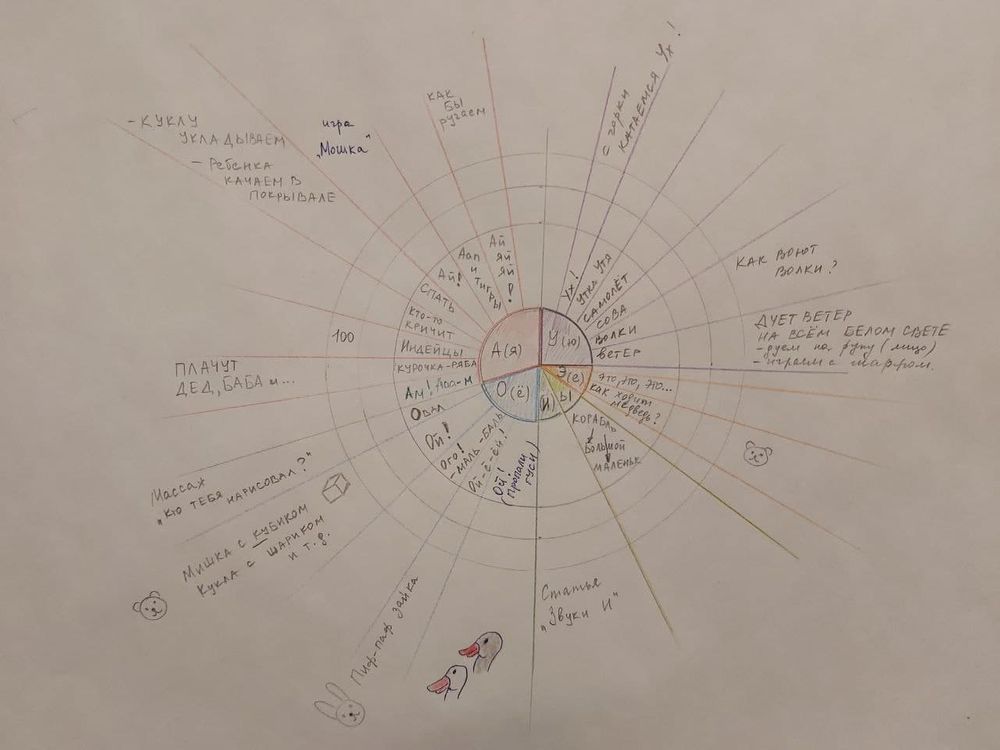 - КУКЛУ
УКЛАДЫВАЕМ
- Ребенка
КАЧАЕМ В
ПОКРЫВАЛЕ
игра
„Мошка"
КАК
БЫ
ругаем
с горки
КАТАЕМСЯ Ух!
КАК ВОЮТ
ВОЛКИ?
ДУЕТ ВЕТЕР
НА ВСЁМ БЕЛОМ СВЕТЕ
- дуем на руку (лицо)
- играем с шарфом.
100
ПЛАЧУТ
ДЕД, БАБА и...
Ай
яй
яй
!
Аап
и
ТИГРЫ
Ай!
СПАТЬ
Кто-то
КРИЧИТ
ИНДЕЙЦЫ
КУРОЧКА-РЯБА
Ам! Ааа-м
ОВАЛ
Ой!
Ого!
-МАЛЬ-БАЛЬ
Ой-ё-ёй!
Ой!
(Пропали
гуси)
А(я)
У(ю)
Э(е)
Ы
И
О(ё)
Ух!
УТКА УТЯ
САМОЛЁТ
СОВА
ВОЛКИ
ВЕТЕР
ЭТО, ЭТО, ЭТО...
КАК ХОДИТ
МЕДВЕДЬ?
КОРАБЛЬ
БОЛЬШОЙ
МАЛЕНЬК
Массаж
„Кто ТЕБЯ НАРИСОВАЛ?"
МИШКА С КУБИКОМ
КУКЛА С ШАРИКОМ
и т.д.
Пиф-паф зайка
Статья
„Звуки И"